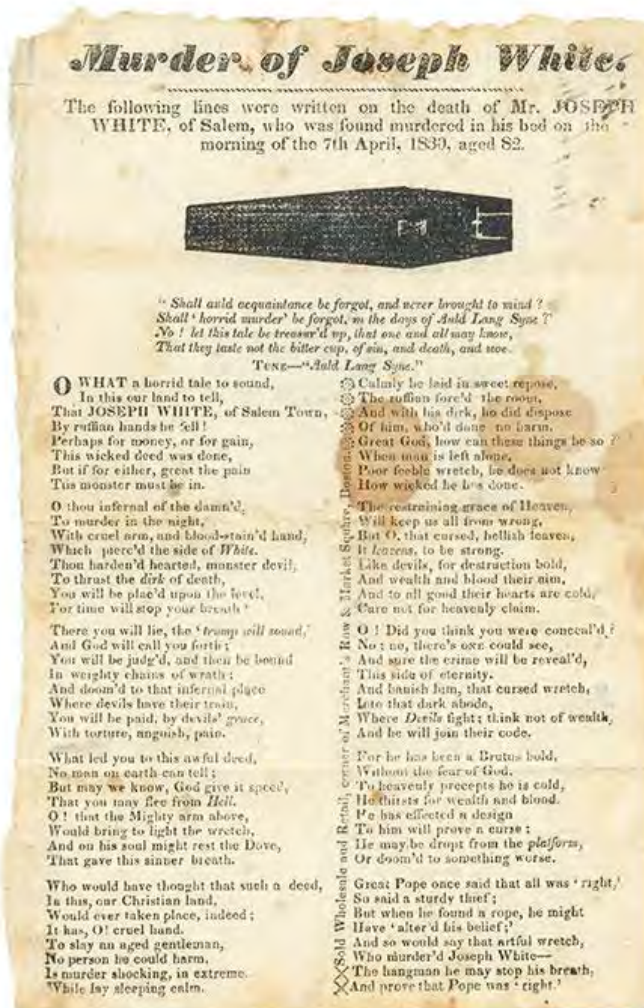 Murder of Joseph White.
The following lines were written on the death of Mr. JOSEPH
WHITE, of Salem, who was found murdered in his bed on the
morning of the 7th April, 1830, aged 82.
" Shall auld acquaintance be forgot, and never brought to mind ?
Shall ' horrid murder' be forgot, in the days of Auld Lang Syne ?'
No ! let this tale be treasur'd up, that one and all may know,
That they taste not the bitter cup, of sin, and death, and woe.
TUNE—"Auld Lang Syne."
O WHAT a horrid tale to sound,
In this our land to tell,
That JOSEPH WHITE, of Salem Town,
By ruffian hands he fell !
Perhaps for money, or for gain,
This wicked deed was done,
But if for either, great the pain
This monster must be in.
O thou infernal of the damn'd,
To murder in the night,
With cruel arm, and blood-stain'd hand,
Which pierc'd the side of White.
Thou harden'd hearted, monster devil,
To thrust the dirk of death,
You will be plac'd upon the level,
For time will stop your breath '
There you will lie, the ' trump will sound,'
And God will call you forth ;
You will be judg'd, and then be bound
In weighty chains of wrath :
And doom'd to that infernal place
Where devils have their train,
You will be paid, by devils' grace,
With torture, anguish, pain.
What led you to this awful deed,
No man on earth can tell ;
But may we know, God give it speed,
That you may flee from Hell.
O ! that the Mighty arm above,
Would bring to light the wretch,
And on his soul might rest the Dove,
That gave this sinner breath.
Who would have thought that such a deed,
In this, our Christian land,
Would ever taken place, indeed ;
It has, O! cruel hand.
To slay an aged gentleman,
No person he could harm,
Is murder shocking, in extreme.
While lay sleeping calm.
Sold Wholesale and Retail, corner of Merchant's Row & Market Square, Boston.
Calmly he laid in sweet repose,
The ruffian forc'd the room,
And with his dirk, he did dispose
Of him, who'd done no harm.
Great God, how can these things be so ?
When man is left alone,
Poor feeble wretch, he does not know
How wicked he has done.
The restraining grace of Heaven,
Will keep us all from wrong,
But O, that cursed, hellish leaven,
It leavens, to be strong.
Like devils, for destruction bold,
And wealth and blood their aim,
And to all good their hearts are cold,
Care not for heavenly claim.
O ! Did you think you were conceal'd ?
No ; no, there's ONE could see,
And sure the crime will be reveal'd,
This side of eternity.
And banish him, that cursed wretch,
Into that dark abode,
Where Devils fight ; think not of wealth,
And he will join their code.
For he has been a Brutus bold,
Without the fear of God.
To heavenly precepts he is cold,
He thirsts for wealth and blood.
He has effected a design
To him will prove a curse ;
He may be dropt from the platform,
Or doom'd to something worse.
Great Pope once said that all was ' right,'
So said a sturdy thief ;
But when he found a rope, he might
Have ' alter'd his belief ;'
And so would say that artful wretch,
Who murder'd Joseph White—
The hangman he may stop his breath,
And prove that Pope was ' right.'